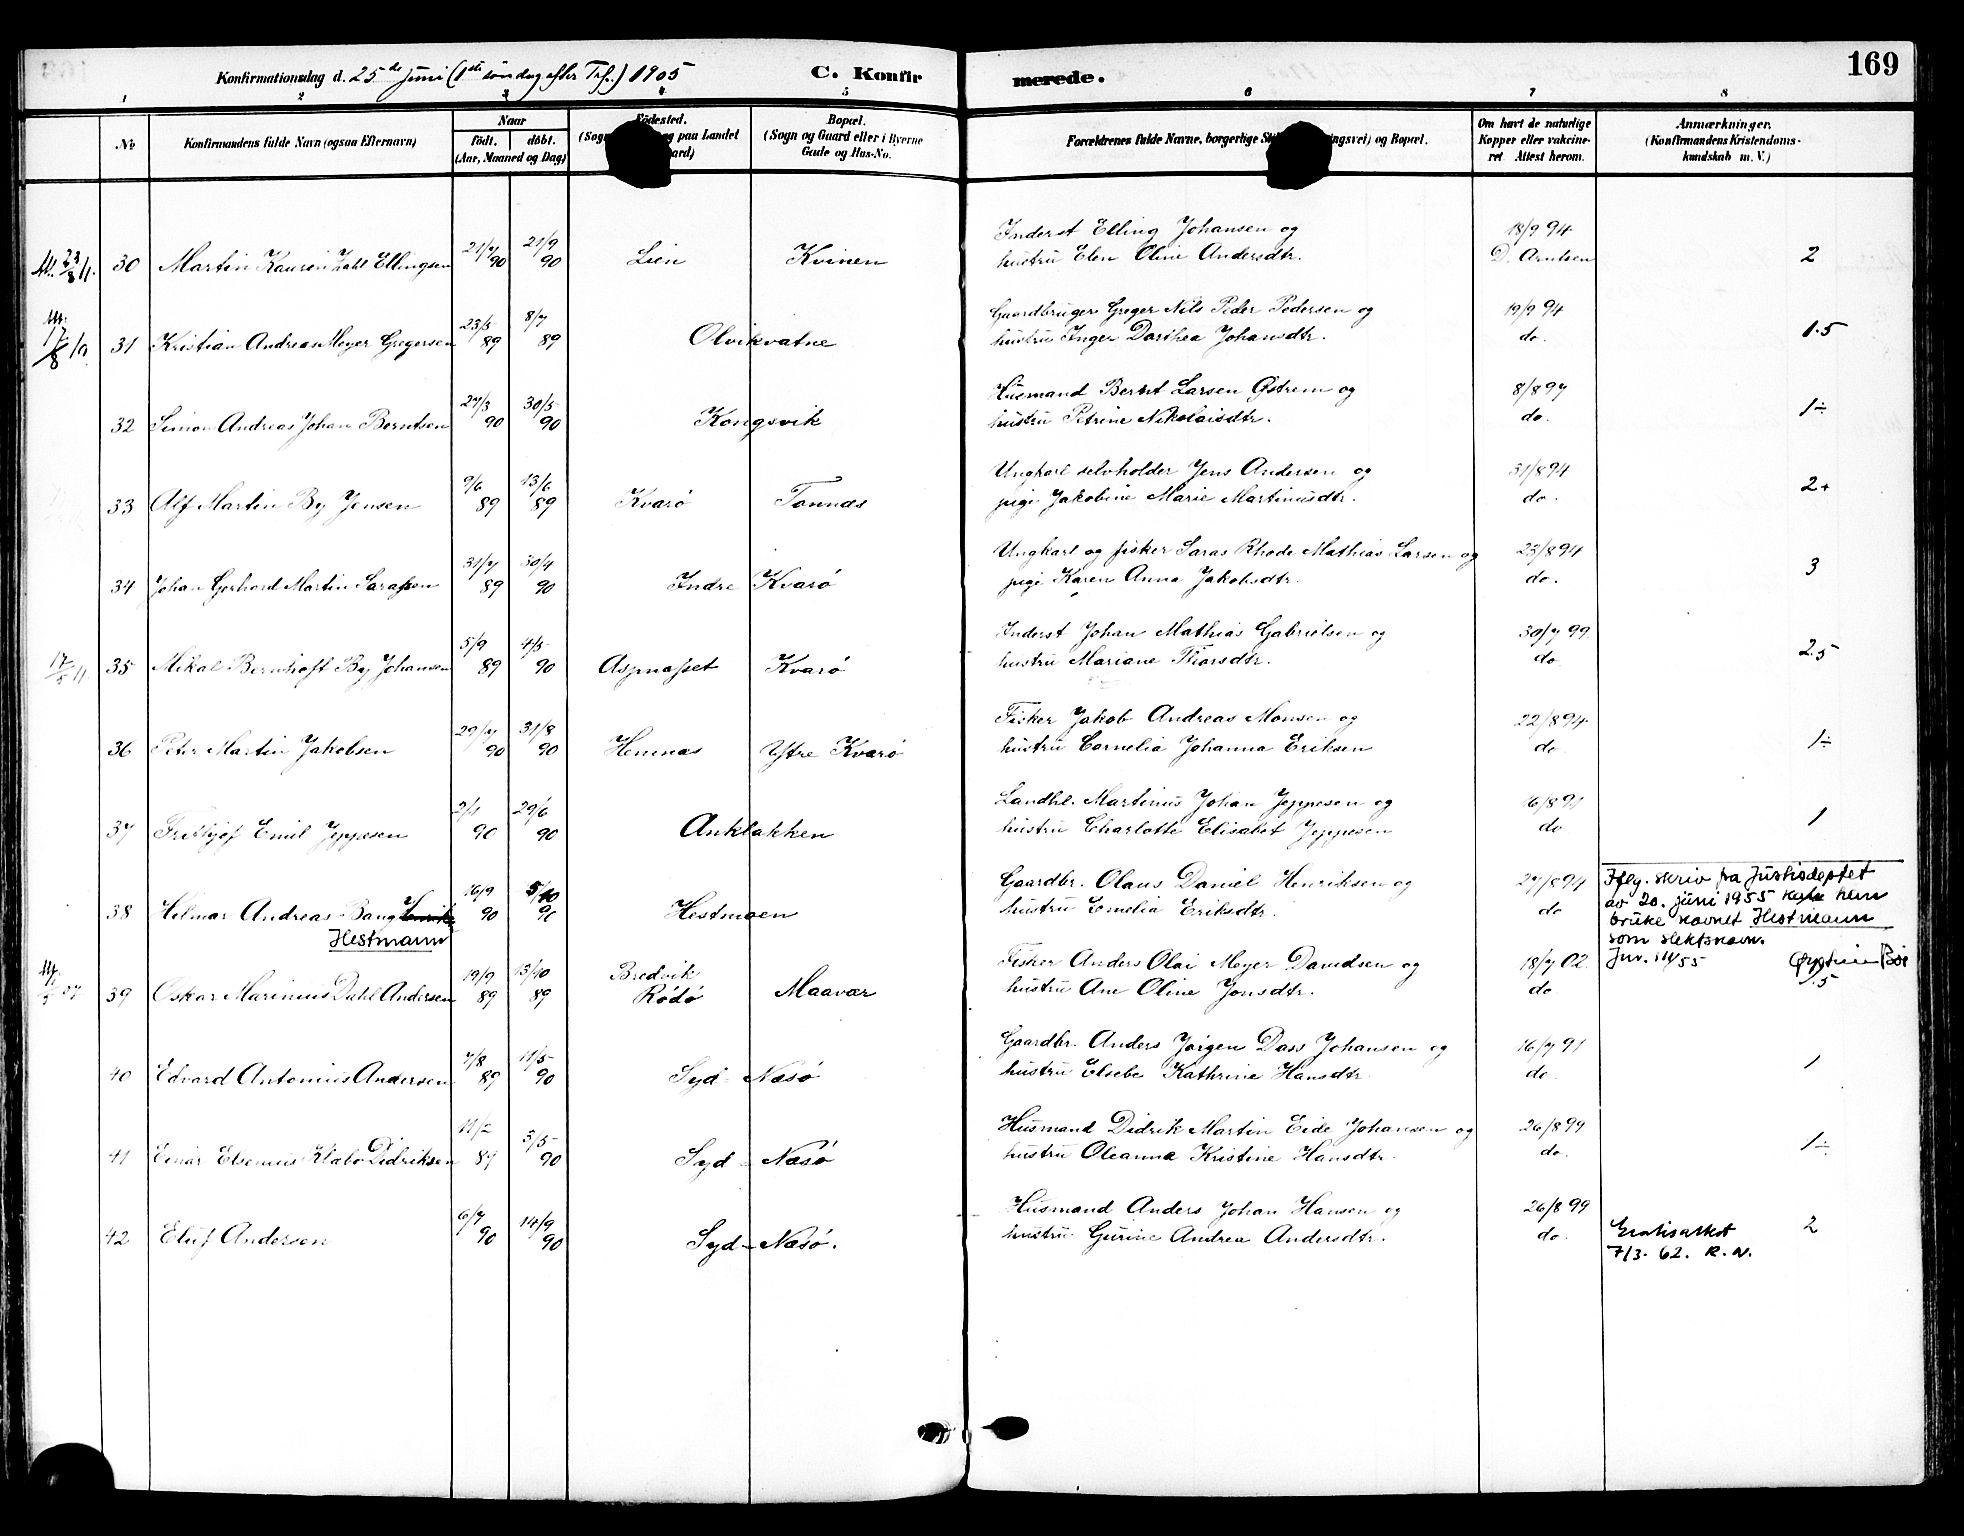 169
Konfirmationsdag d. 25de juni (1ste søndag efter Tref.) 1905
C. Konfirmerede.
1 2 3 4 5 6 7 8
No
Konfirmandens fulde Navn (ogsaa Efternavn)
Naar
født. døbt.
(Aar, Maaned og Dag)
Fødested.
Bopæl.
(Sogn og Gaard eller i Byerne
Gade og Hus-No.
Forældrenes fulde Navne, borgerlige og Bopæl.
Om havt de naturlige
Kopper eller vakcine-
ret Attest herom.
Anmærkninger.
(Konfirmandens Kristendoms-
kundskab m. V.)
30 Martin Kausen Zahl Ellingsen 21/7 90 21/9 90 Lien Kvinen
Inderst Elling Johansen og
hustru Elen Oline Andersdtr. 18/9 94 D. Arntsen 2
31 Kristian Andreas Meyer Gregersen 23/5 89 8/7 89 Olvikvatne
Gaardbruger Greger Nils Peder Pedersen og
hustru Inger Dorthea Johansdtr. 19/9 94 do. 1.5
32 Simon Andreas Johan Berntsen 27/3 90 30/5 90 Kongsvik
Husmand Bernt Larsen Østrem og
hustru Petrine Nikolaisdtr. 8/8 97 do. 1÷
33 Alf Martin By Jensen 9/6 89 13/6 89 Kvarø Tonnes
Ungkarl selvholder Jens Andersen og
pige Jakobine Marie Martinusdtr. 31/8 94 do. 2+
34 Johan Gerhard Martin Sarassen 31/7 89 30/4 90 Indre Kvarø
Ungkarl og fisker Saras Rhode Mathias Larsen og
pige Karen Anna Jakobsdtr. 23/8 94 do. 3
17/5 11. 35 Mikal Bernhoft By Johansen 5/9 89 4/5 90 Aspnasset Kvarø
Inderst Johan Mathias Gabrielsen og
hustru Mariane Thorsdtr. 30/7 99 do. 2.5
36 Peter Martin Jakobsen 29/7 90 31/8 90 Hemnas Ytre Kvarø
Fisker Jakob Andreas Monsen og
hustru Cornelia Johanna Eriksen 22/8 94 do. 1÷
37 Fritjof Emil Jeppesen 2/1 90 29/6 90 Anklakken
Landhl. Martinus Johan Jeppesen og
hustru Charlotte Elisabet Jeppesen 16/8 91 do 1
38 Helmar Andreas Bang 16/9 90 5/10 90 Hestmoen
Hestmann
Gaardbr. Olaus Daniel Henriksen og
hustru Emelia Eriksdtr. 27/8 94 do
Iflg. skriv fra Justisdeptet
av 20. juni 1955 kan han
bruke navnet Hestmann
som slektsnavn.
39 Oskar Marinius Dahl Andersen 19/9 89 13/10 89 Bredvik Rödö Maavær
Fisker Anders Olai Meyer Davidsen og
hustru Ane Oline Jonsdtr. 18/7 02. do
40 Edvard Antonius Andersen 7/8 89 11/5 90 Syd-Nesø
Gaardbr. Anders Jørgen Dass Johansen og
hustru Elsebe Kathrine Hansdtr 16/7 91 do. 1
41 Einar Elsenius Klabo Didriksen 11/2 89 3/5 90 Syd-Nesø
Husmand Didrik Martin Eide Johansen og
hustru Oleanna Kristine Hansdtr. 26/8 99 do. 1÷
42 Eluf Andersen 6/7 90 14/9 90 Syd-Nesø.
Husmand Anders Johan Hansen og
hustru Gurine Andrea Andersdtr. 26/8 99 do. 2
Gratisattest
7/3-62. R.N.